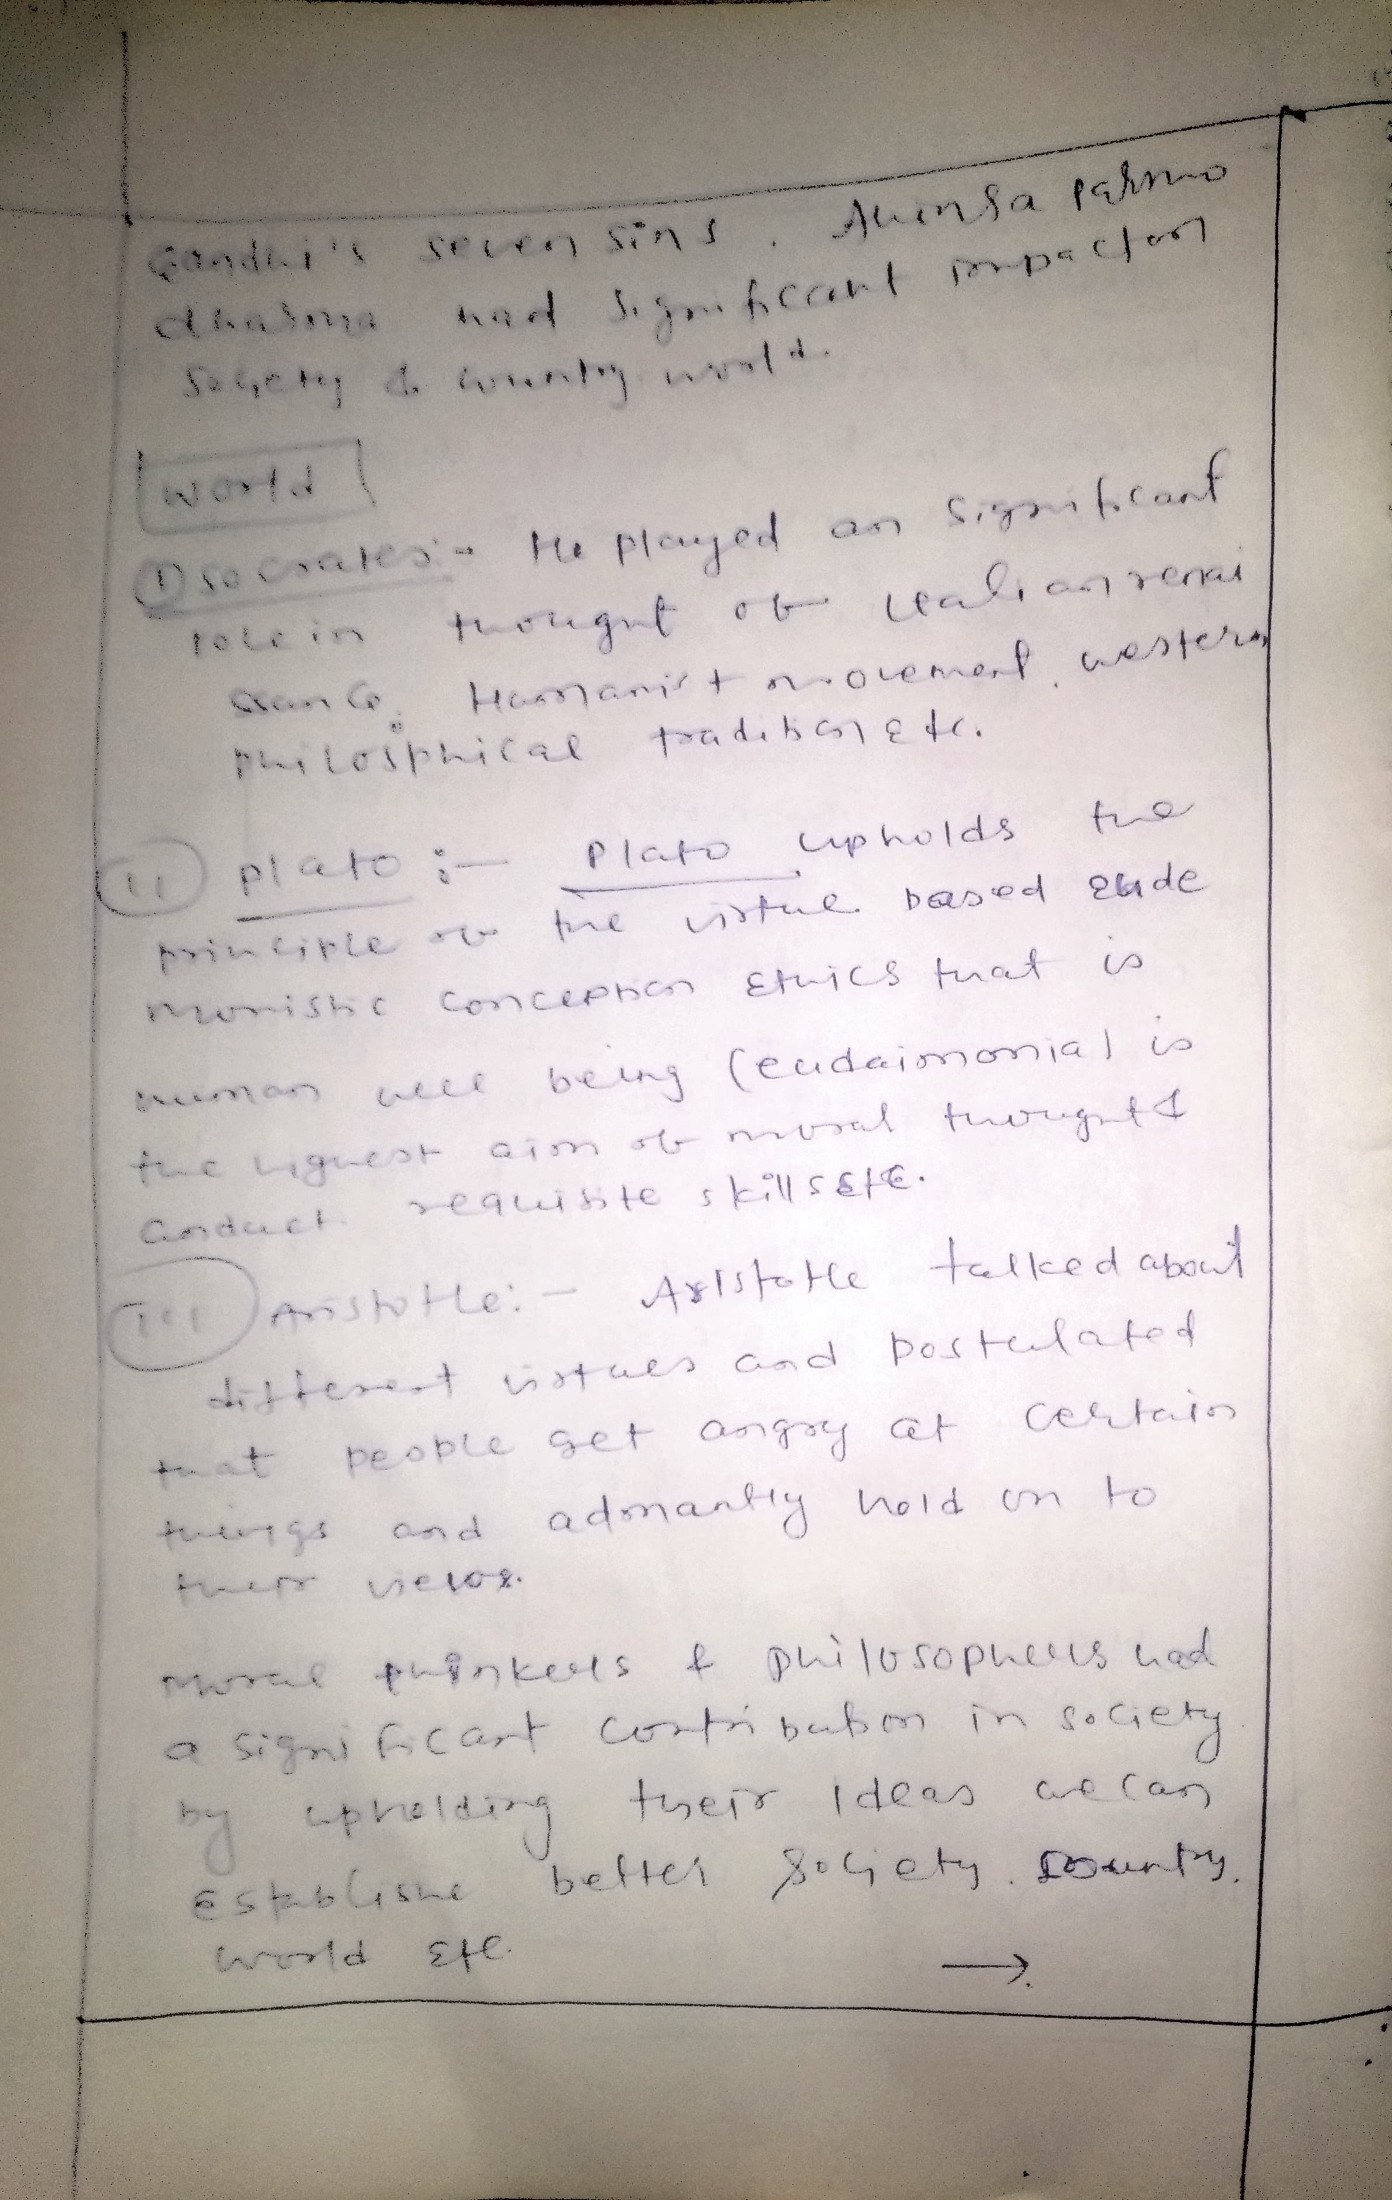 Gandhi's seven sins. Ahinsa Parmo
dharma had significant impact on
society & country world.
World
(I) Socrates:- He played an significant
role in thought of Italian renai
ssance, Humanist movement, western
philosphical tradition etc.
(II) Plato :- Plato upholds the
principle of the virtue based eude
monistic conception Ethics that is
human well being (eudaimonia) is
the highest aim of moral thought &
conduct. requisite skills etc.
(III) Aristotle:- Aristotle talked about
different virtues and postulated
that people get angry at certain
things and admantly hold on to
their views.
Moral thinkers & philosophers had
a significant contribution in society
by upholding their Ideas we can
establishe better society. country.
world etc.
→